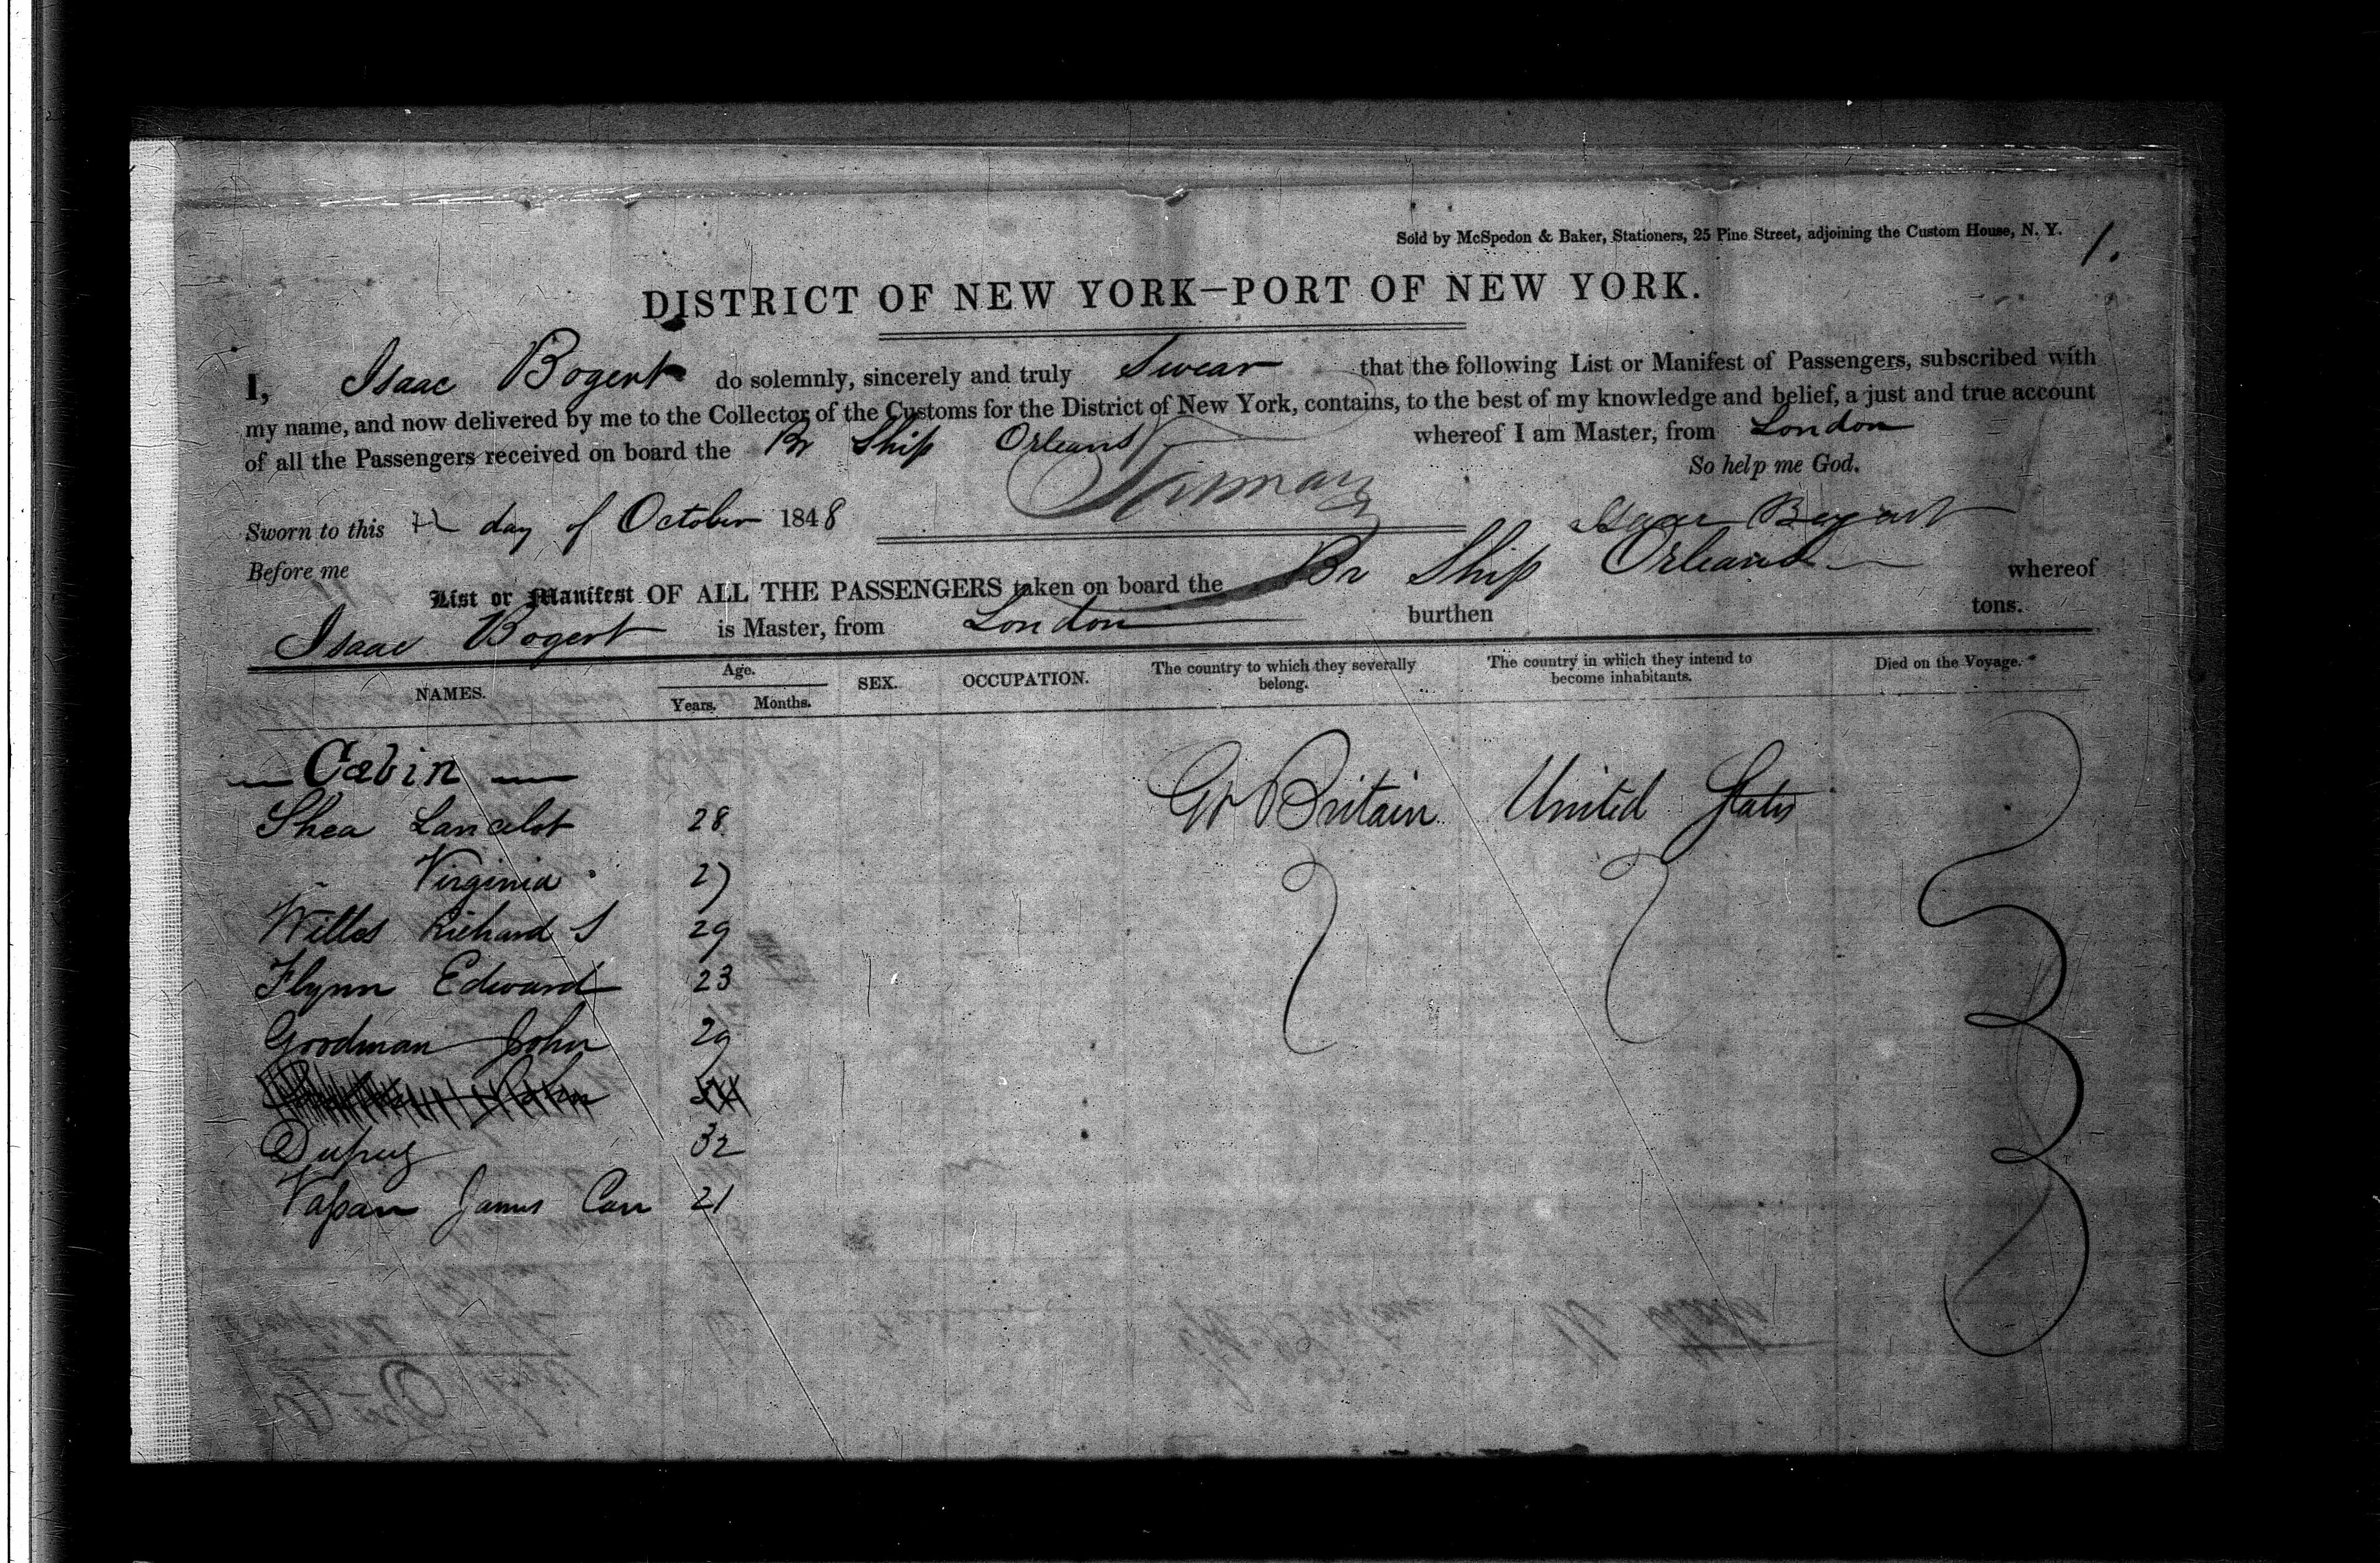 Sold by McSpedon & Baker, Stationers, 25 Pine Street, adjoining the Custom House, N. Y.
1.
DISTRICT OF NEW YORK—PORT OF NEW YORK.
I, Isaac Bogert do solemnly, sincerely and truly Swear that the following List or Manifest of Passengers, subscribed with
my name, and now delivered by me to the Collector of the Customs for the District of New York, contains, to the best of my knowledge and belief, a just and true account
of all the Passengers received on board the Br Ship Orleans whereof I am Master, from London
So help me God.
Sworn to this day of October 1848
Isaac Bogert
Before me
List or Manifest OF ALL THE PASSENGERS taken on board the Br Ship Orleans whereof
Isaac Bogert is Master, from London burthen tons.
NAMES. Age. Years. Months. SEX. OCCUPATION. The country to which they severally belong. The country in which they intend to become inhabitants. Died on the Voyage.
— Cabin —
Shea Lancelot 28 Gt Britain United States
Virginia 27
Richard S 29
Flynn Edward 23
Goodman John 29
John
Dupuy 32
James Carr 21